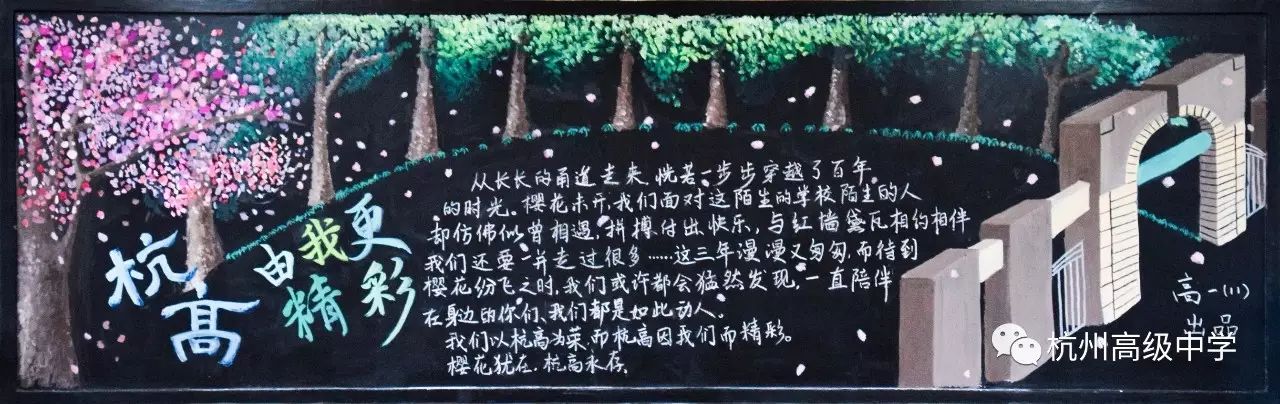 杭高
由我更
精彩
从长长的甬道走来,恍若一步步穿越了百年
的时光。樱花未开,我们面对这陌生的学校陌生的人
却仿佛似曾相遇,拼搏付出快乐,与红墙黛瓦相约相伴
我们还要一并走过很多……这三年漫漫又匆匆,而待到
樱花纷飞之时,我们或许都会猛然发现,一直陪伴
在身边的你们、我们都是如此动人。
我们以杭高为荣,而杭高因我们而精彩。
樱花犹在,杭高永存。
高一(11)
出品
杭州高级中学